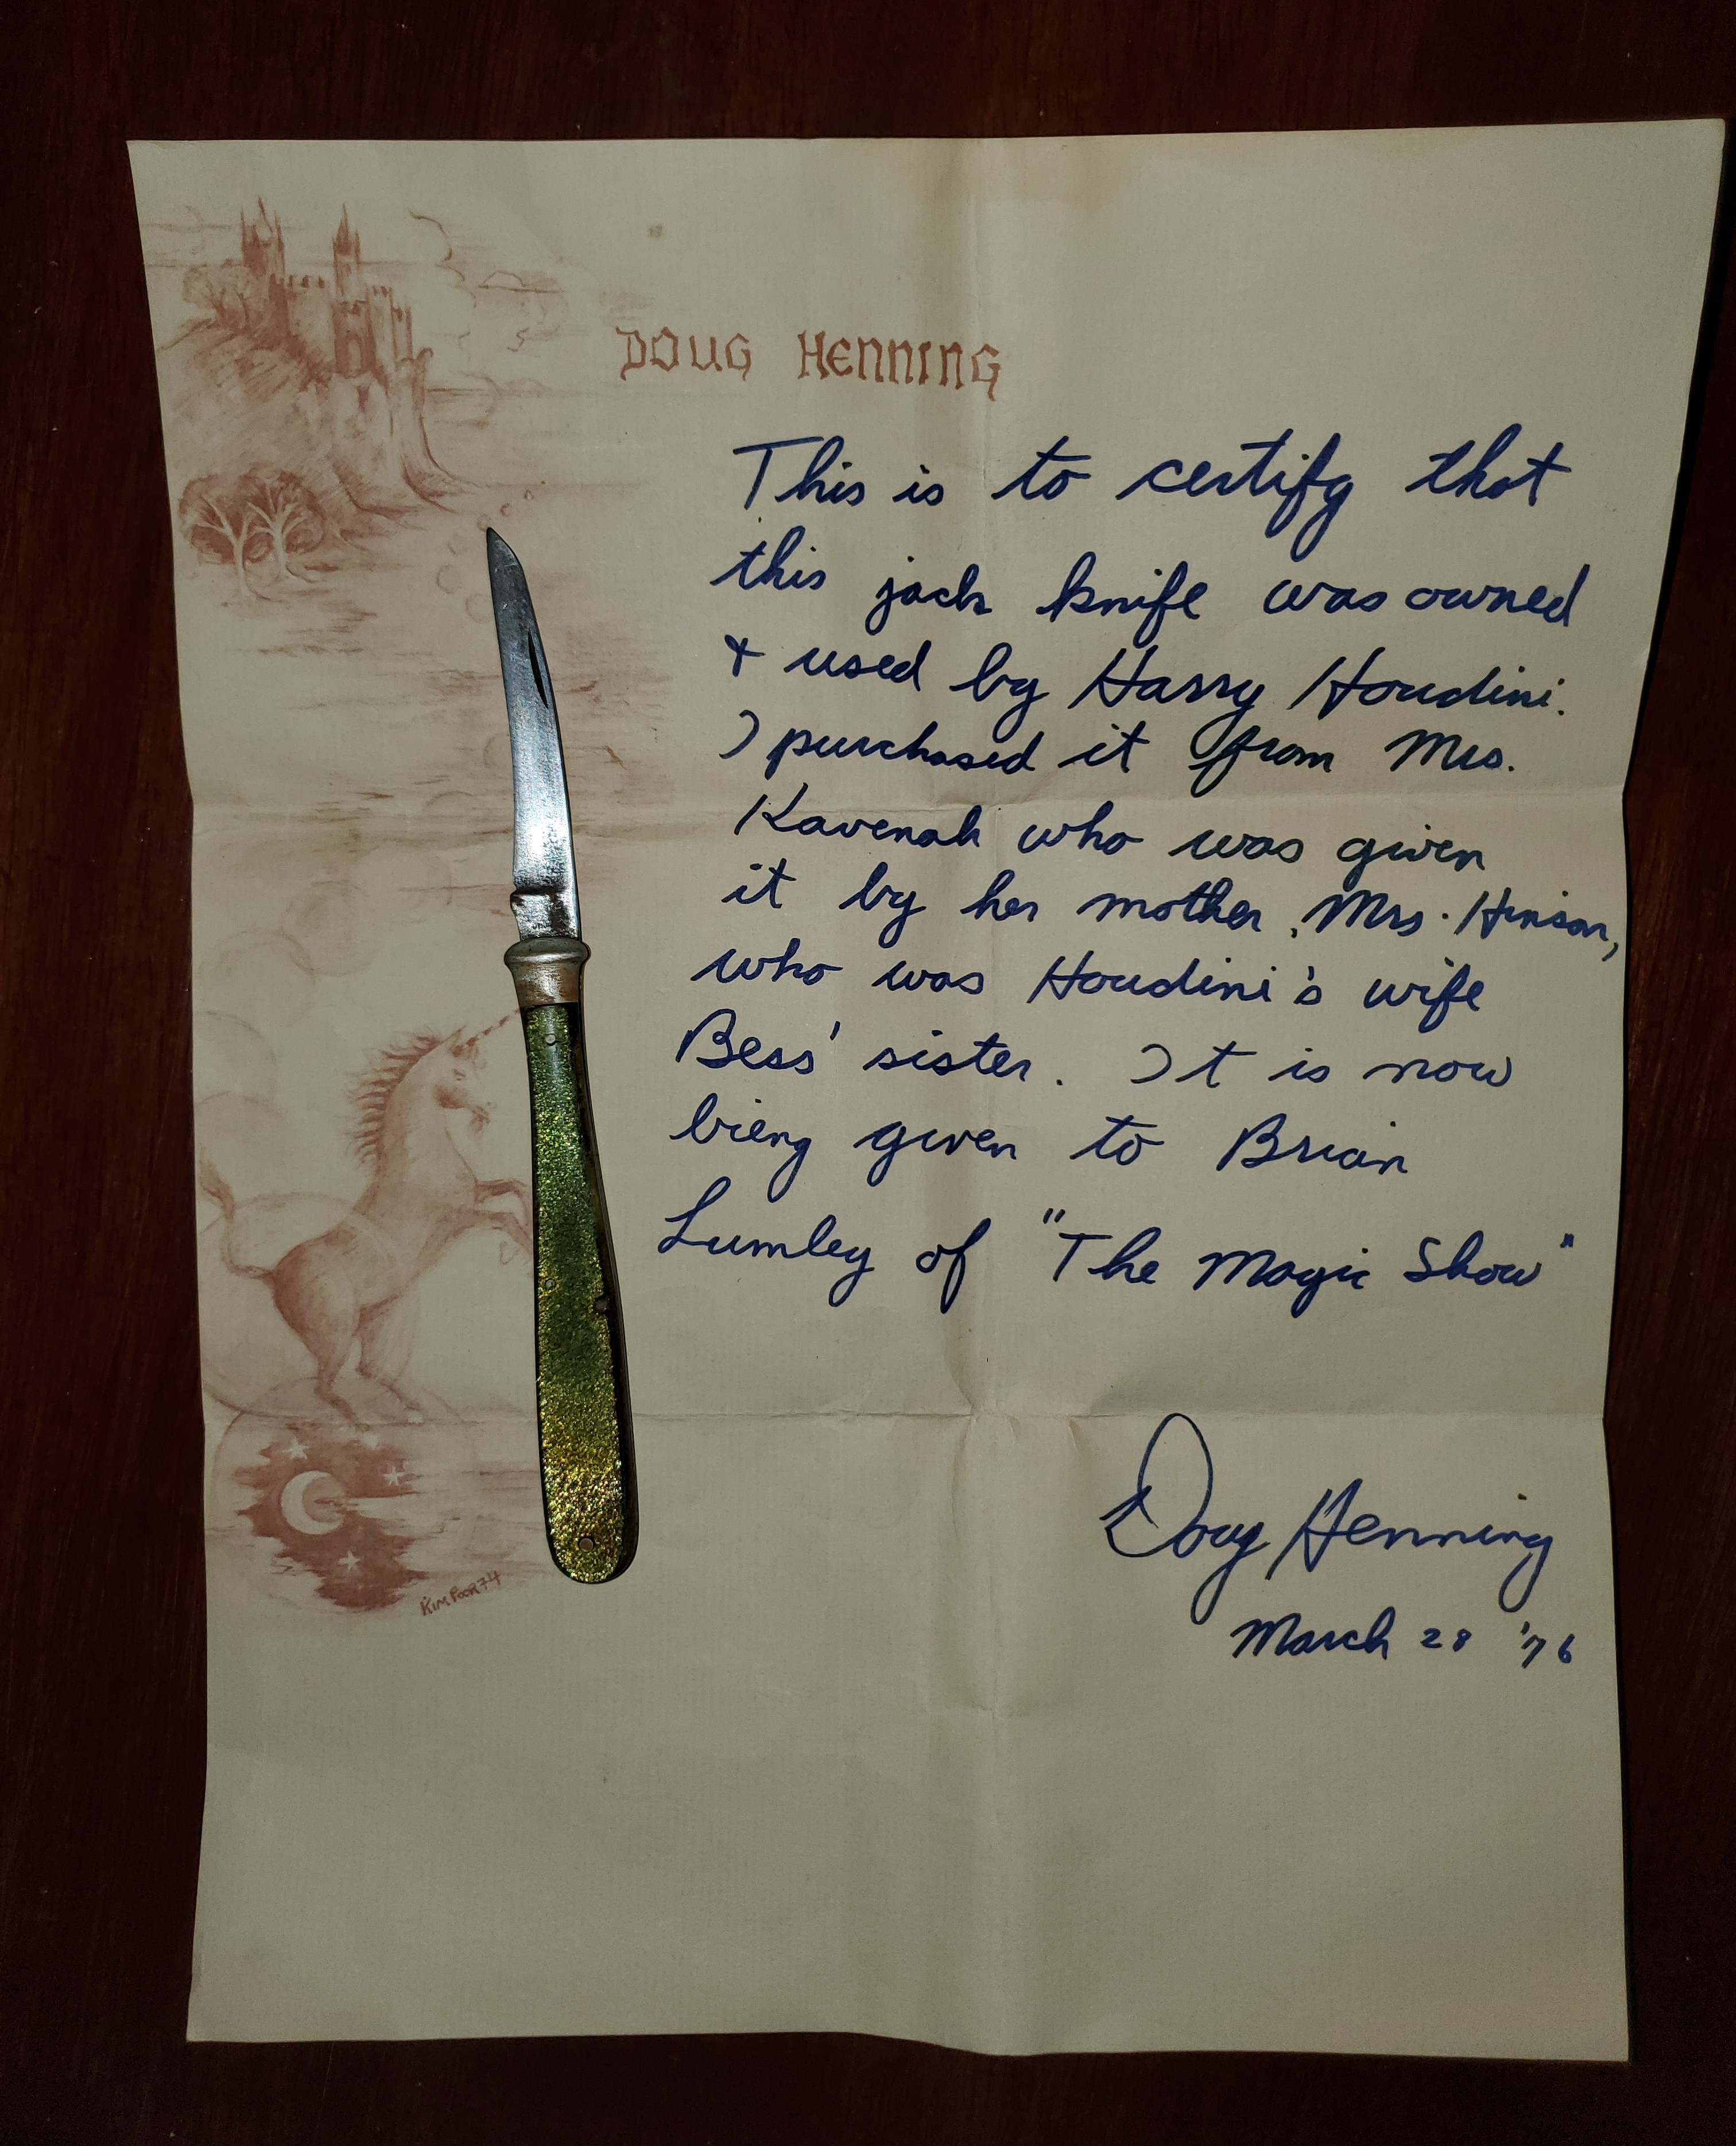 DOUG HENNING
This is to certify that
this jack knife was owned
& used by Harry Houdini.
I purchased it from Mrs.
Kavenah who was given
it by her mother, Mrs. Hinson,
who was Houdini's wife
Bess' sister. It is now
bieng given to Brian
Lumley of "The Magic Show"
Doug Henning
March 28 '76
KIM POOR 74